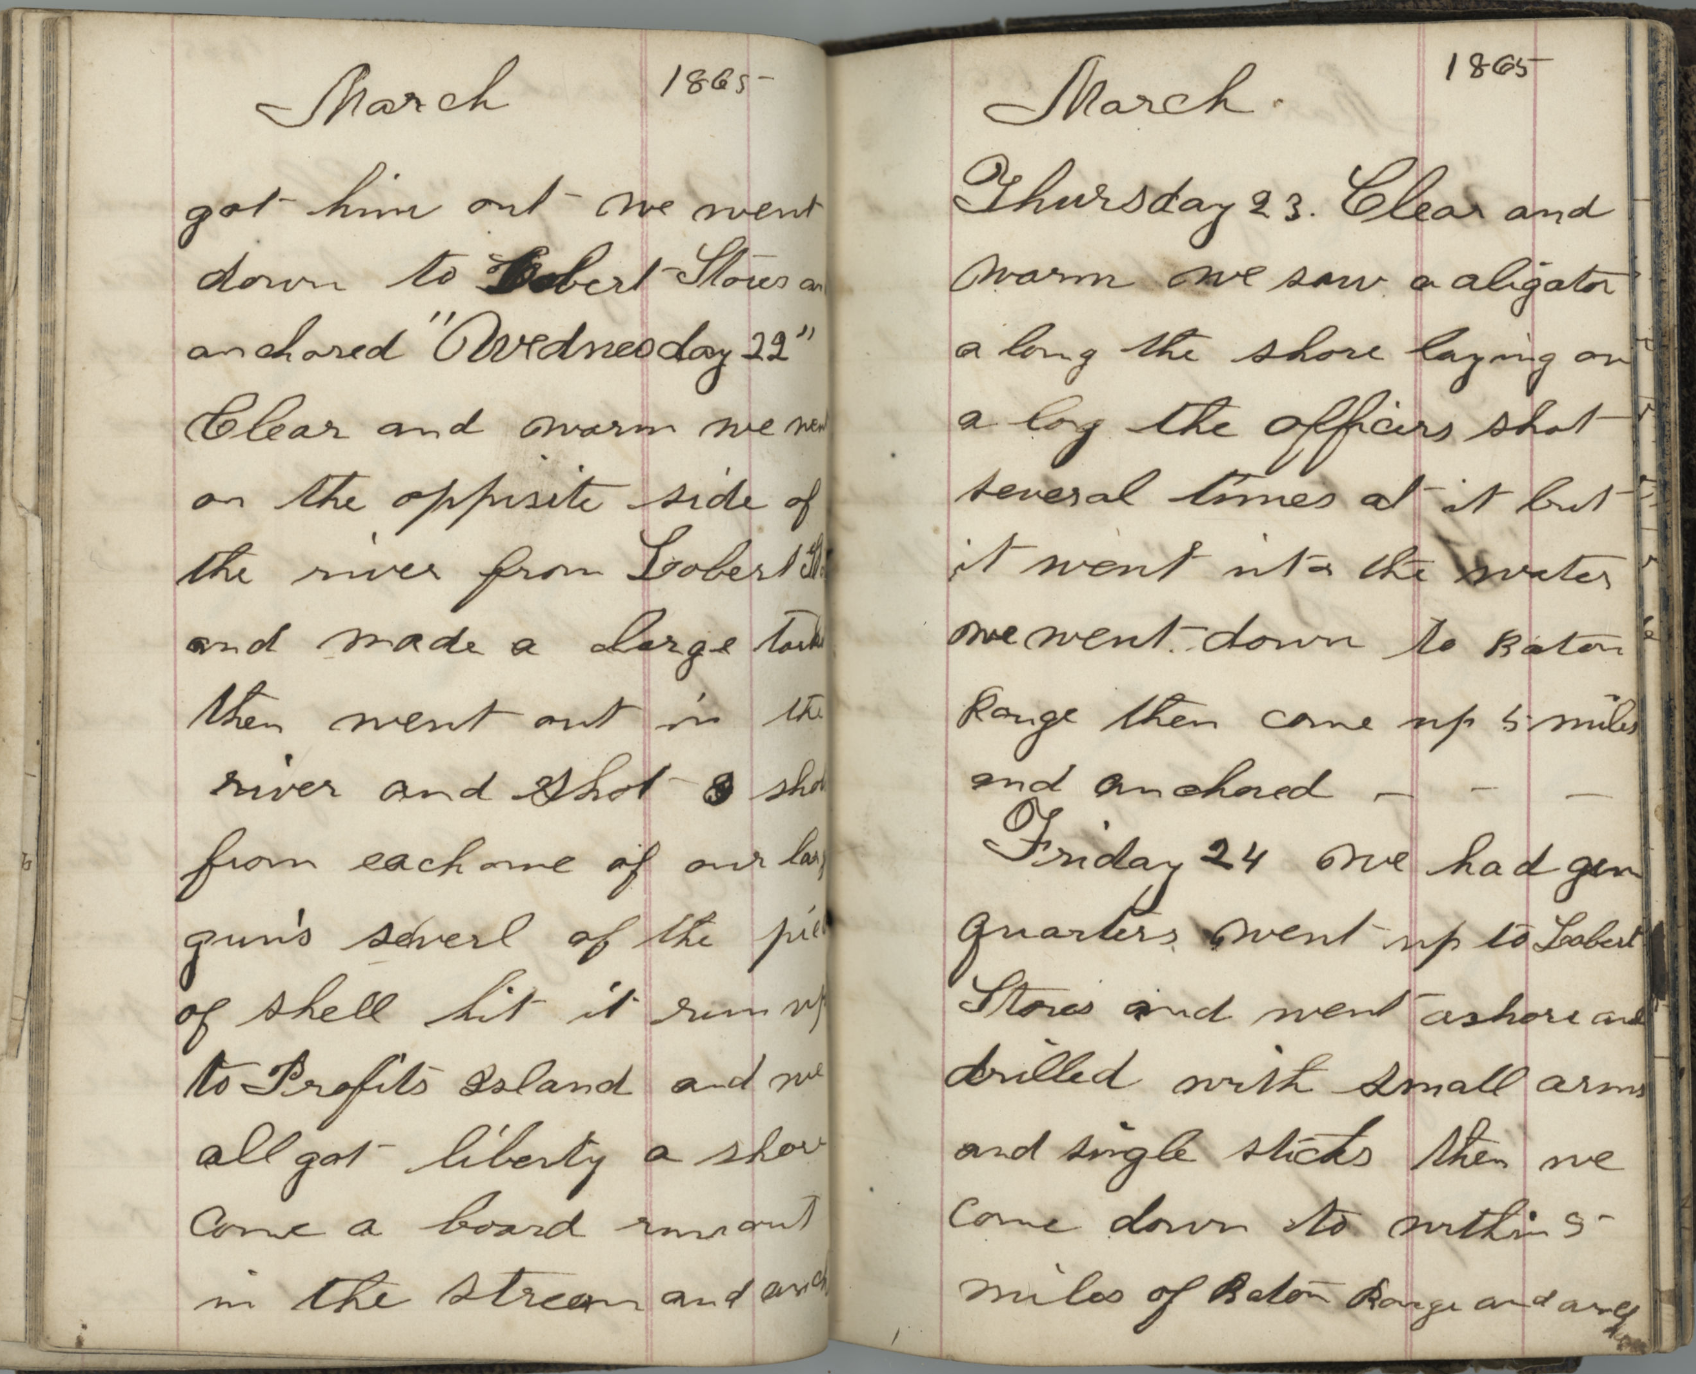 March 1865
got him out we went
down to Lobert Stores an
anchored "Wednesday 22"
Clear and warm we went
on the oppisite side of
the river from Lobert St
and made a large
then went out in the
river and shot 8 shot
from each one of our larg
gun's severl of the pie
of shell hit it run up
to Profits Island and we
all got liberty a shore
Come a board run out
in the stream and anch
March. 1865
Thursday 23. Clear and
warm we saw a aligator
a long the shore laying on
a log the officers shot
several times at it but
it went into the water
we went down to Baton
Rouge then come up 5 miles
and anchored – – –
Friday 24 we had gun
quarters went up to Lobert
Stores and went ashore and
drilled with small arms
and single sticks then we
Come down to within 5
miles of Baton Rouge and anch